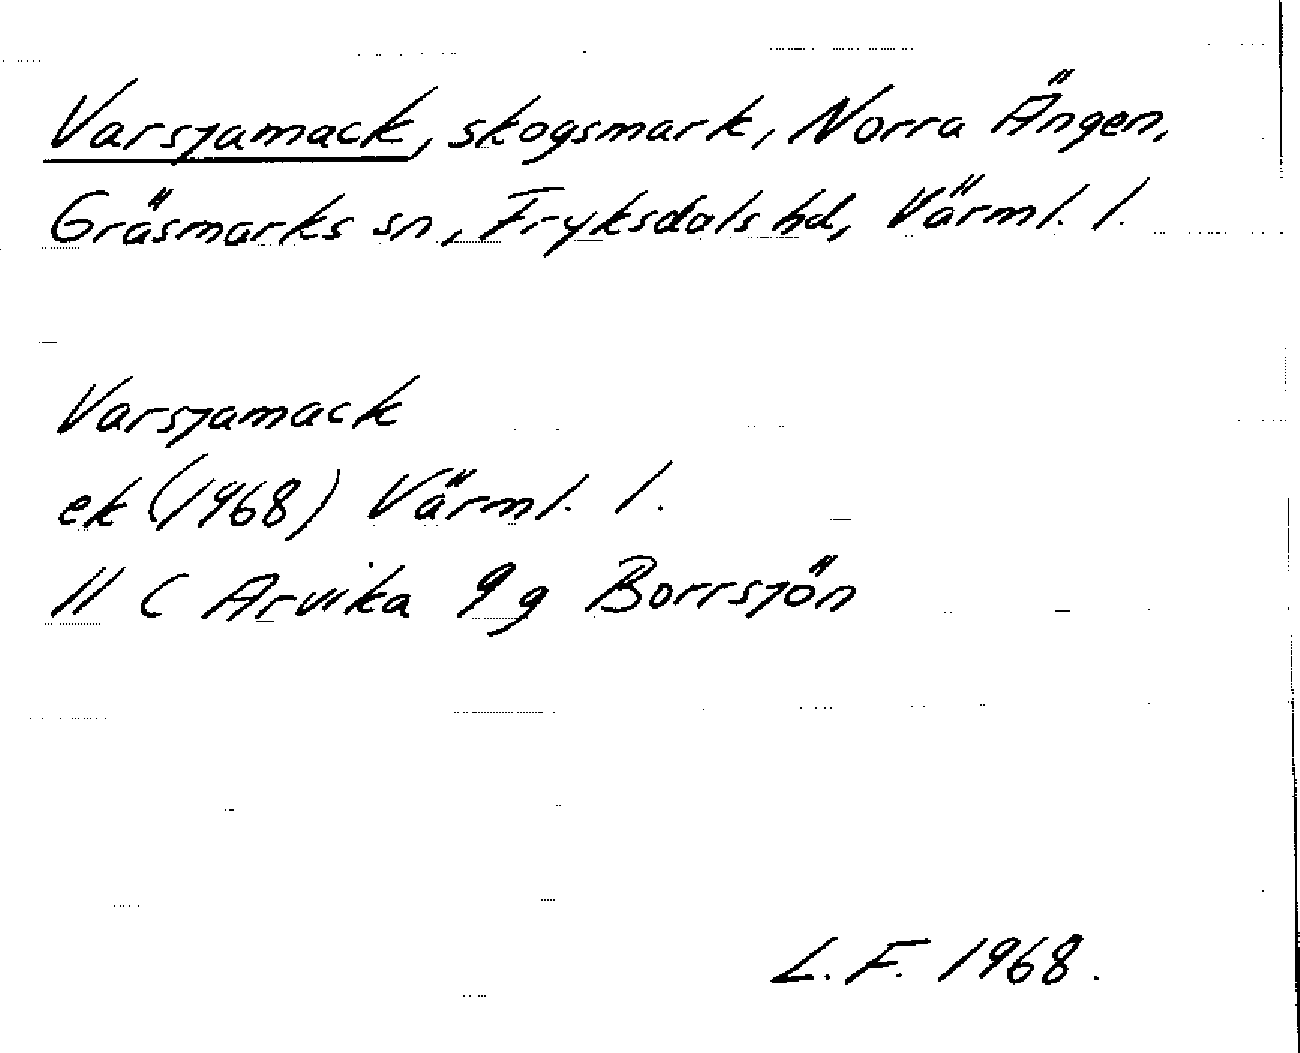 Varsjamack, skogsmark, Norra Ängen,
Gräsmarks sn, Fryksdals hd, Värml. l.
Varsjamack
ek (1968) Värml. l.
11 C Arvika 9 g Borrsjön
L. F. 1968.